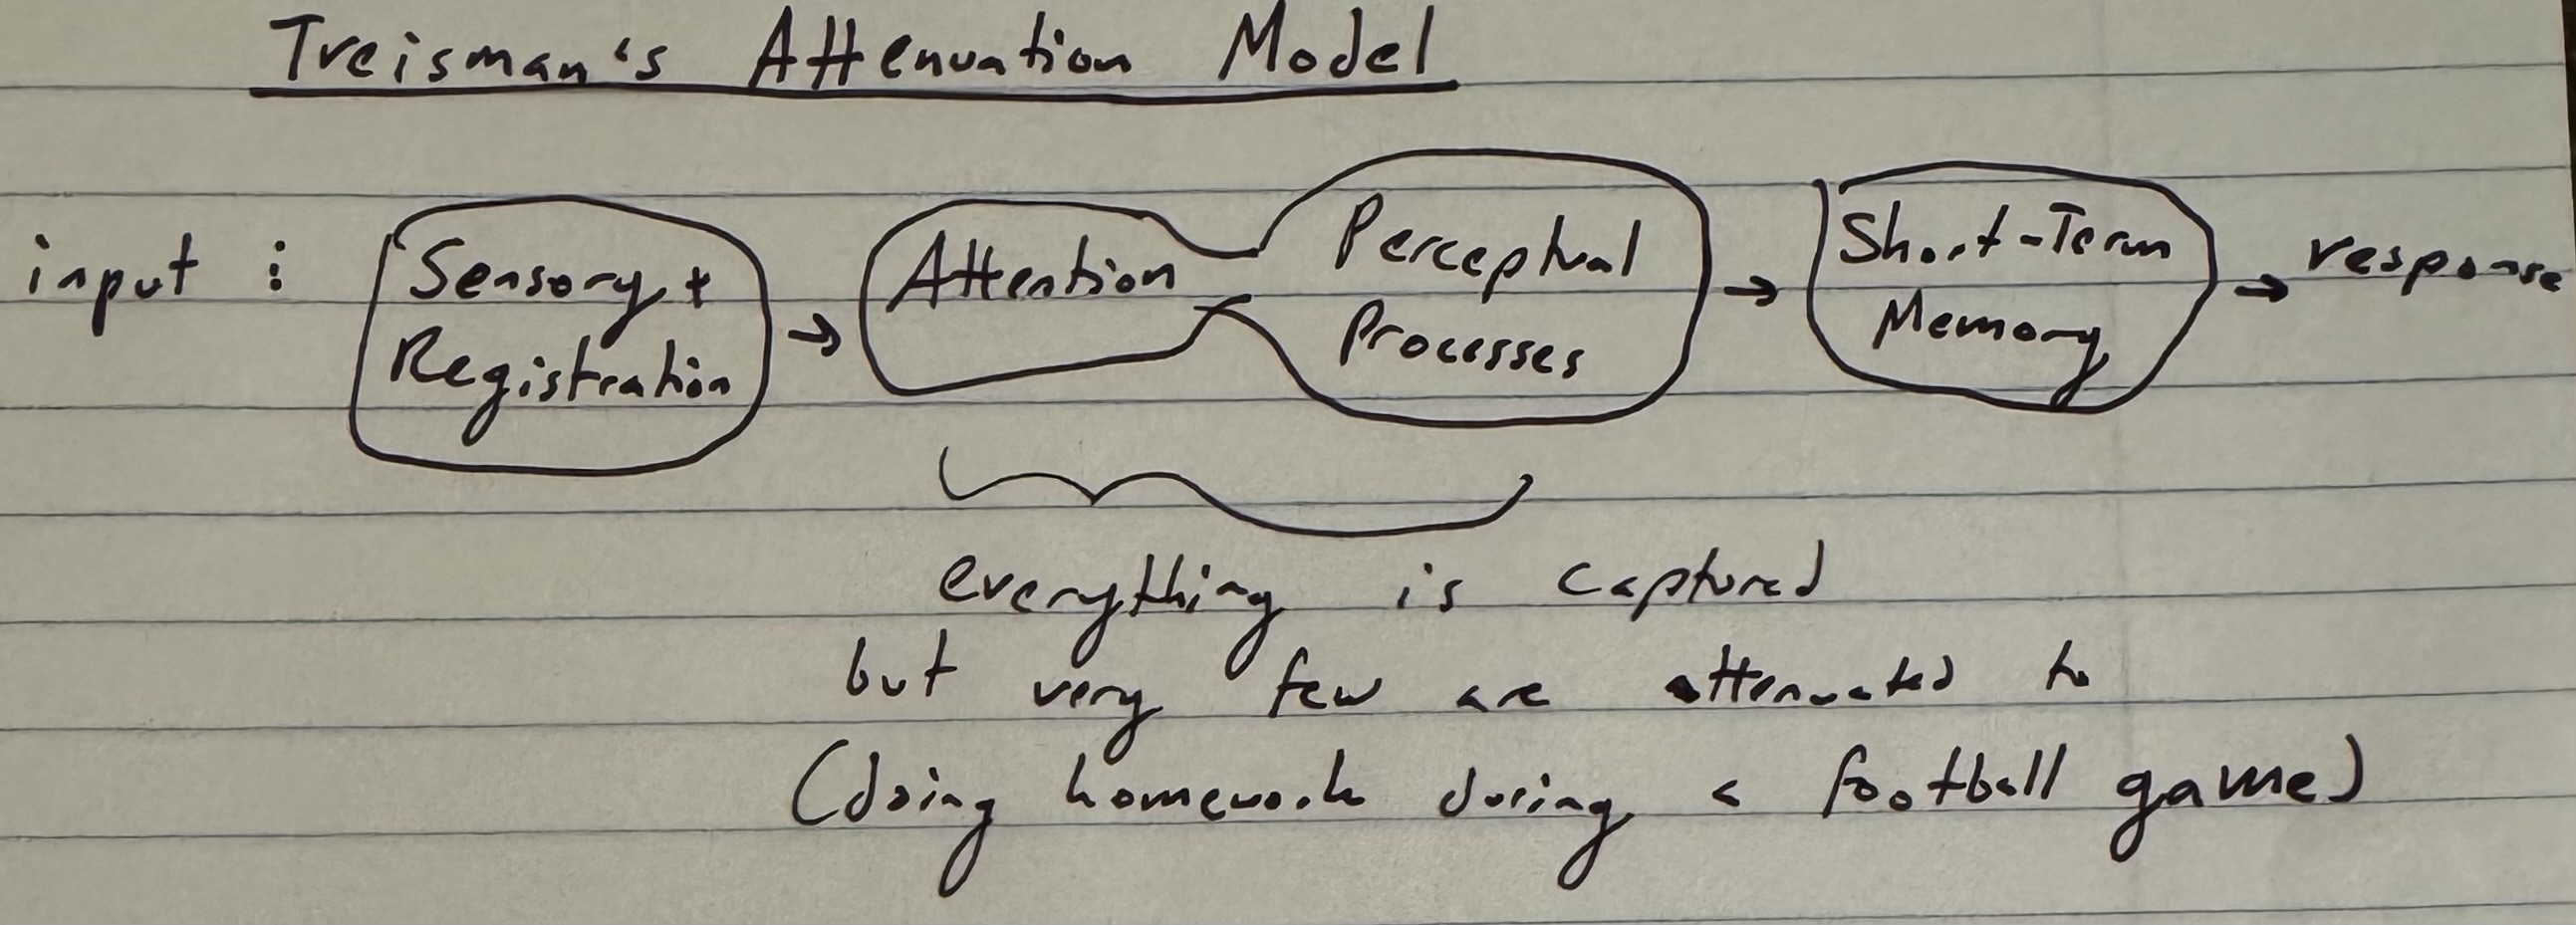 Treisman's Attenuation Model
input :
Sensory +
Registration
→
Attention
Perceptual
Processes
→
Short-Term
Memory
→ response
everything is captured
but very few are attenuated to
(doing homework during a football game)